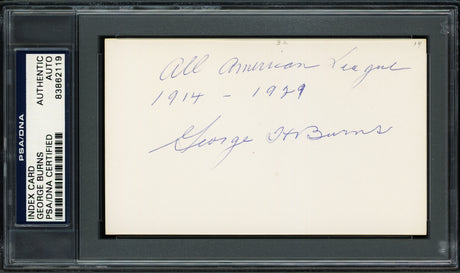 32
All American League
1914 - 1929
George H Burns
PSA/DNA
INDEX CARD
GEORGE BURNS
PSA/DNA CERTIFIED
AUTHENTIC
AUTO
83862119